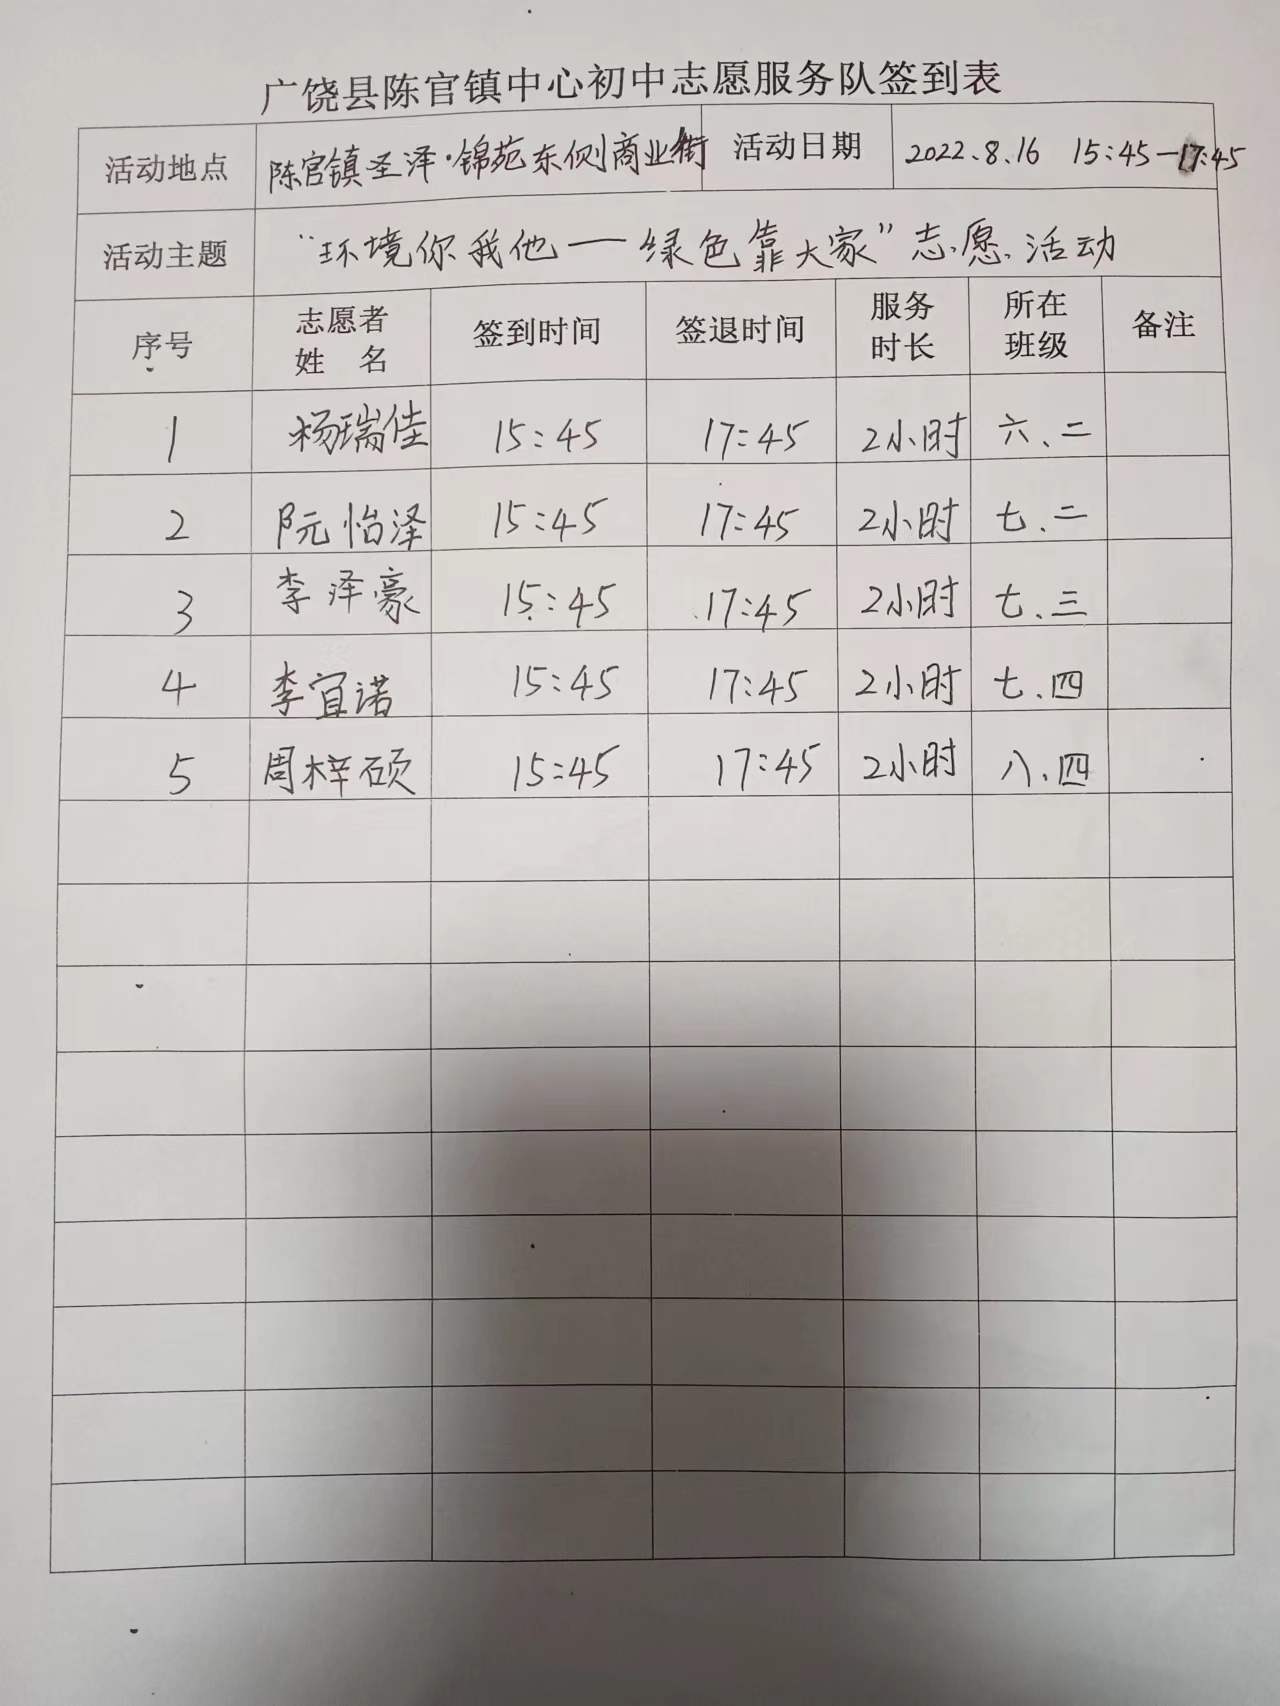 广饶县陈官镇中心初中志愿服务队签到表
活动地点 陈官镇圣泽·锦苑东侧商业街 活动日期 2022.8.16 15:45—17:45
活动主题 “环境你我他——绿色靠大家”志愿活动
序号 志愿者姓 名 签到时间 签退时间 服务时长 所在班级 备注
1 杨瑞佳 15:45 17:45 2小时 六、二
2 阮怡泽 15:45 17:45 2小时 七、二
3 李泽豪 15:45 17:45 2小时 七、三
4 李宜诺 15:45 17:45 2小时 七、四
5 周梓硕 15:45 17:45 2小时 八、四